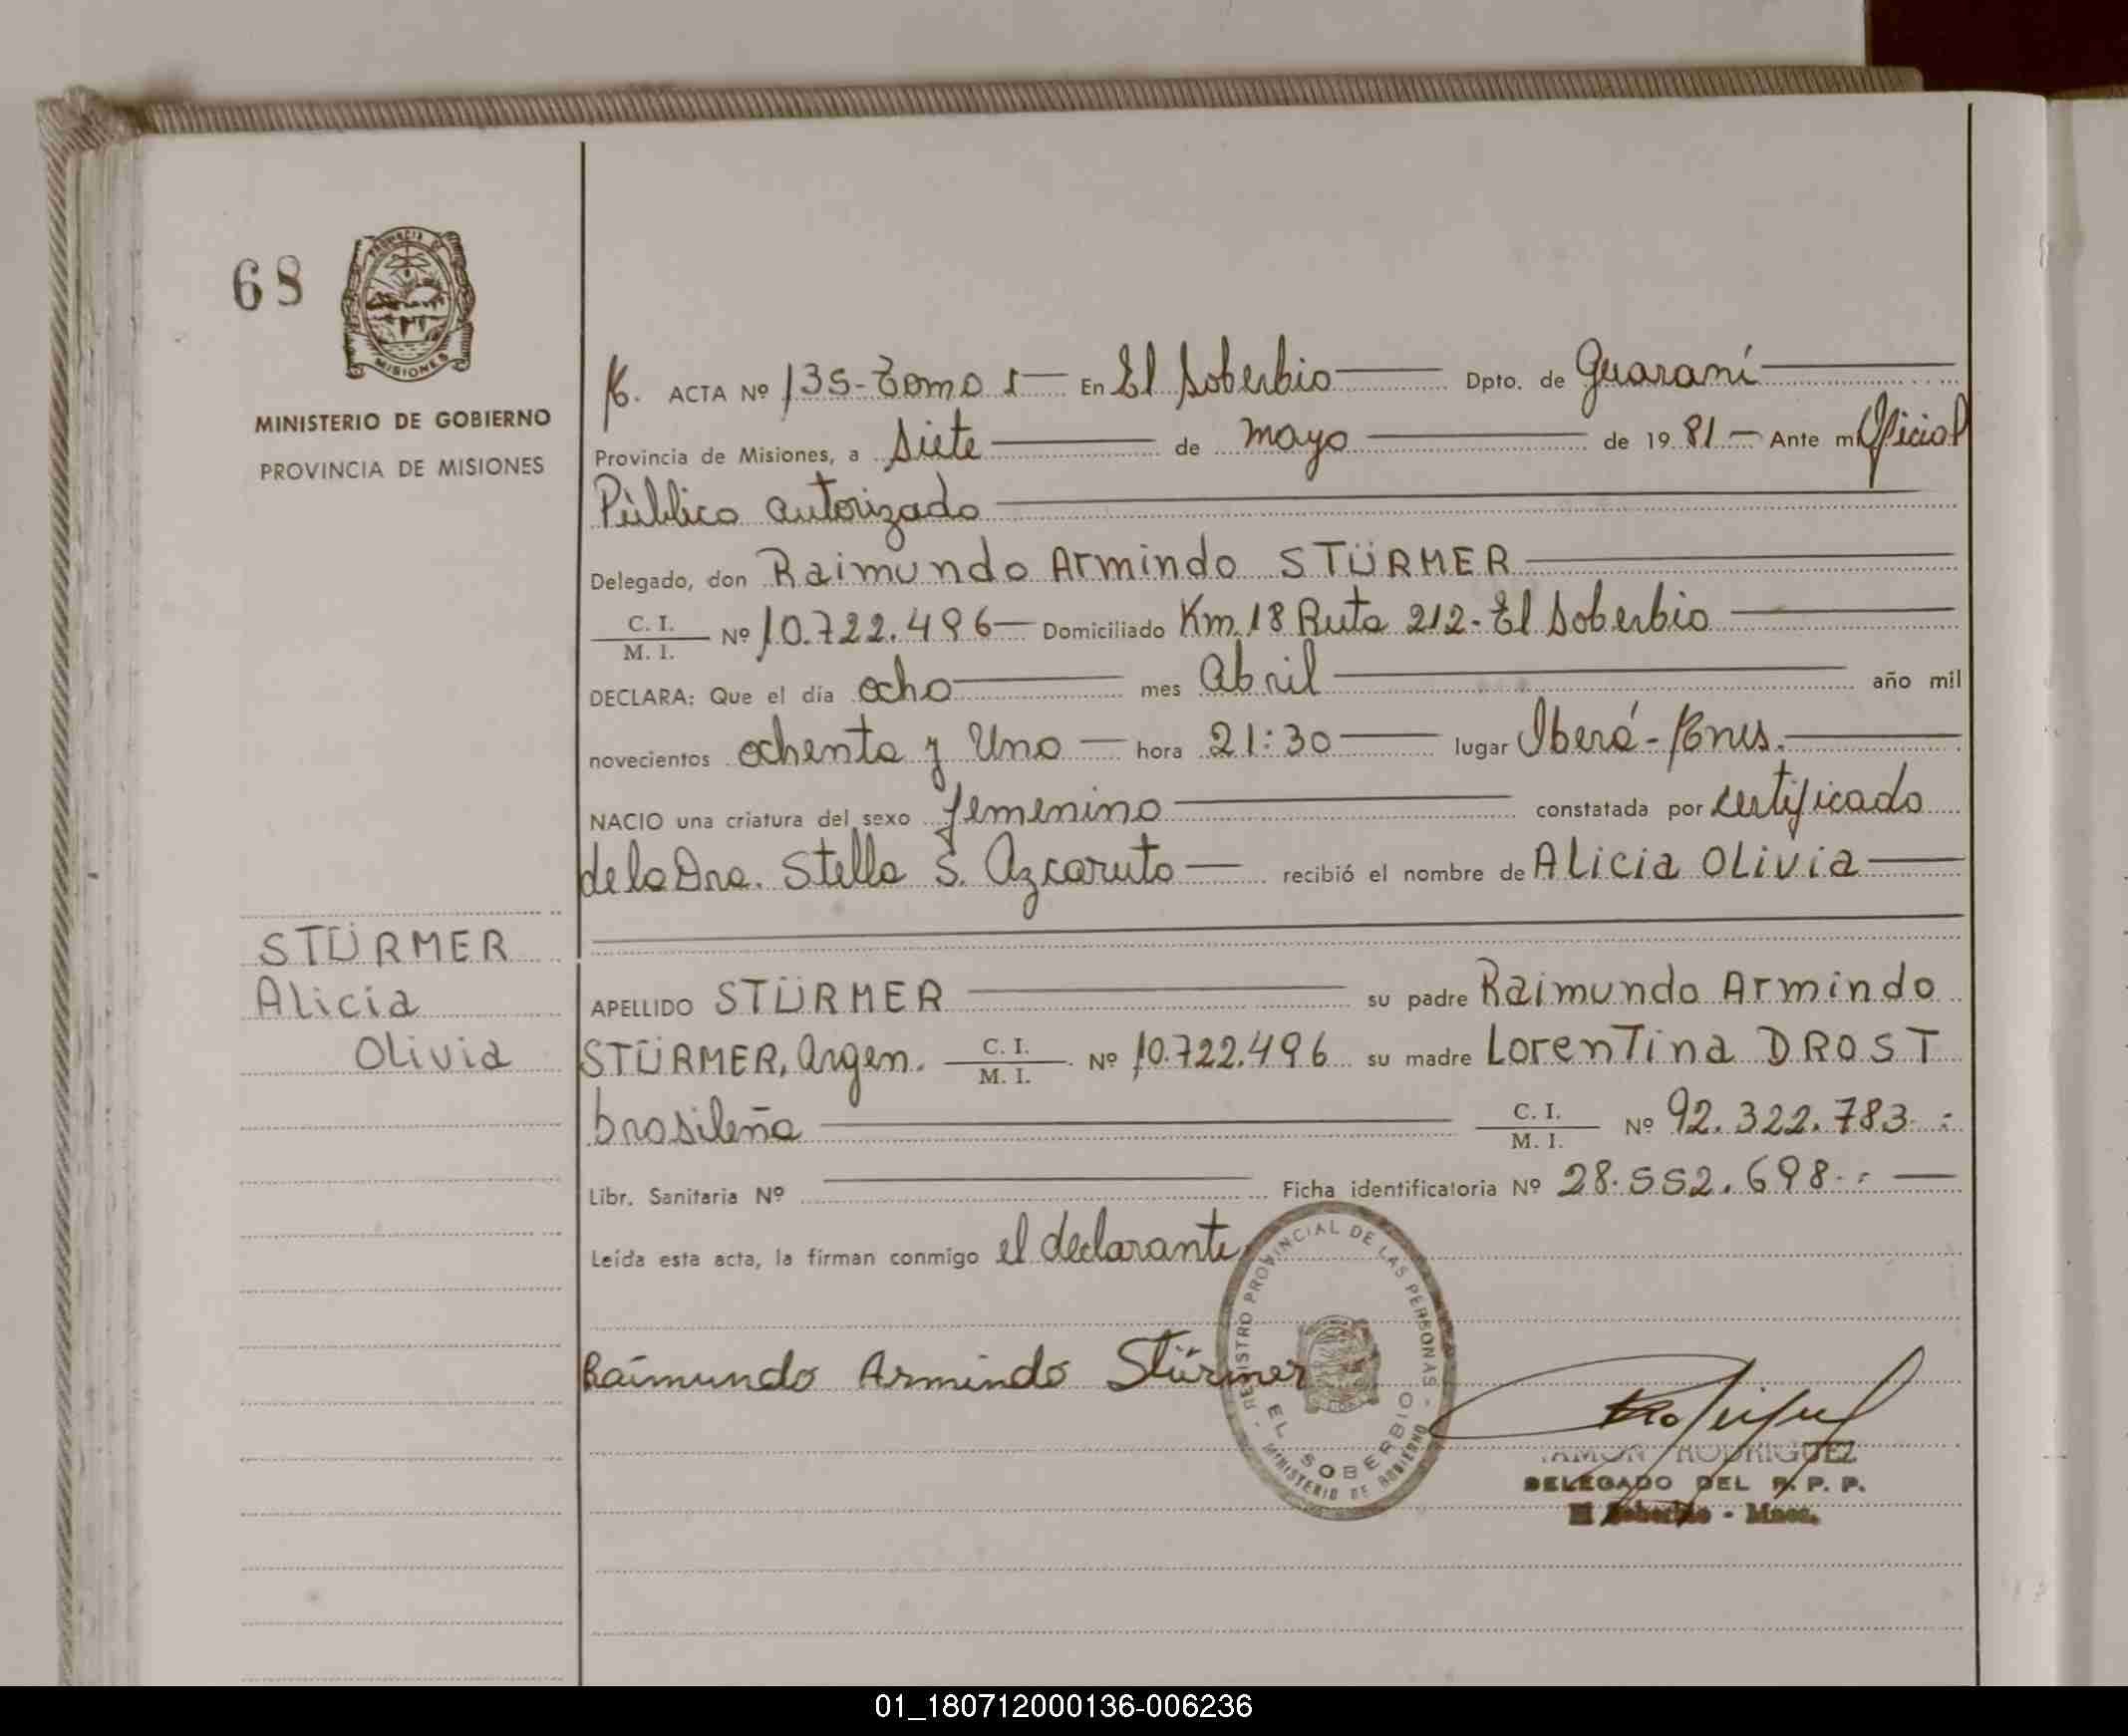 68
PROVINCIA DE
MISIONES
MINISTERIO DE GOBIERNO
PROVINCIA DE MISIONES
ACTA Nº 135-Tomo I En El Soberbio Dpto. de Guaraní
Provincia de Misiones, a siete de mayo de 1981 Ante mi Oficial
Público autorizado
Delegado, don Raimundo Armindo STÜRMER
C. I.
M. I. Nº 10.722.496 Domiciliado Km. 18 Ruta 212- El Soberbio
DECLARA: Que el día ocho mes Abril año mil
novecientos ochenta y Uno hora 21:30 lugar Iberá-
NACIO una criatura del sexo femenino constatada por certificado
de la Dra. Stella S. Azcaruto recibió el nombre de Alicia Olivia
STÜRMER
Alicia
Olivia
APELLIDO STÜRMER su padre Raimundo Armindo
STÜRMER, Argen. C. I.
M. I. Nº 10.722.496 su madre Lorentina DROST
brasileña C. I.
M. I. Nº 92.322.783.-
Libr. Sanitaria Nº Ficha identificatoria Nº 28.552.698.-
Leída esta acta, la firman conmigo el declarante
Raimundo Armindo Stürmer
REGISTRO PROVINCIAL DE LAS PERSONAS
EL SOBERBIO
MINISTERIO DE GOBIERNO
RAMON RODRIGUEZ
DELEGADO DEL R. P. P.
El Soberbio - Mnes.
01_180712000136-006236